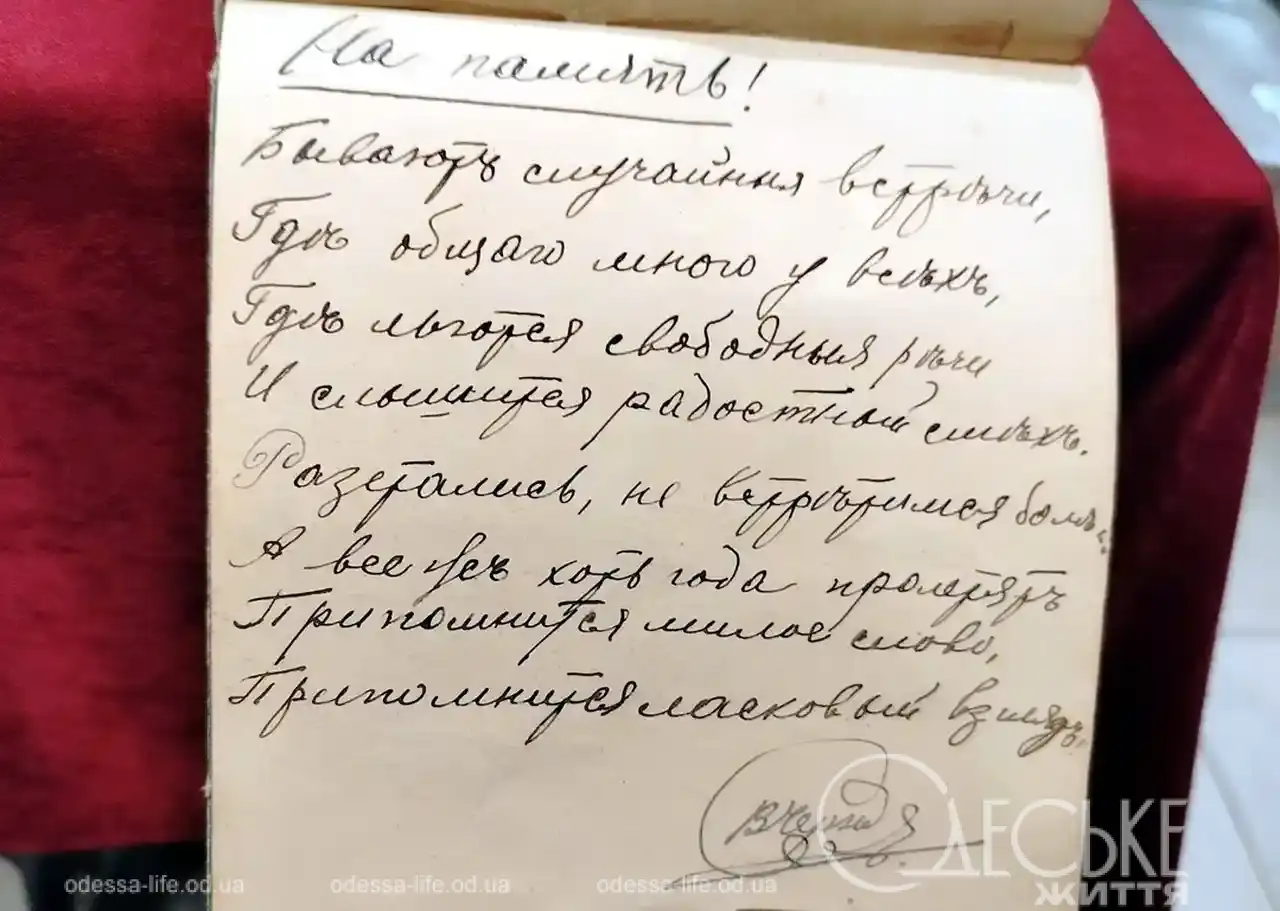 На память!
Бываютъ случайныя встрѣчи,
Гдѣ общаго много у всѣхъ,
Гдѣ льются свободныя рѣчи
И слышится радостный смѣхъ.
Разстались, не встрѣтимся болѣ...
А все жъ хоть года пролетятъ
Припомнится милое слово,
Припомнится ласковый взглядъ.
ОДЕСЬКЕ
ЖИТТЯ
odessa-life.od.ua odessa-life.od.ua odessa-life.od.ua